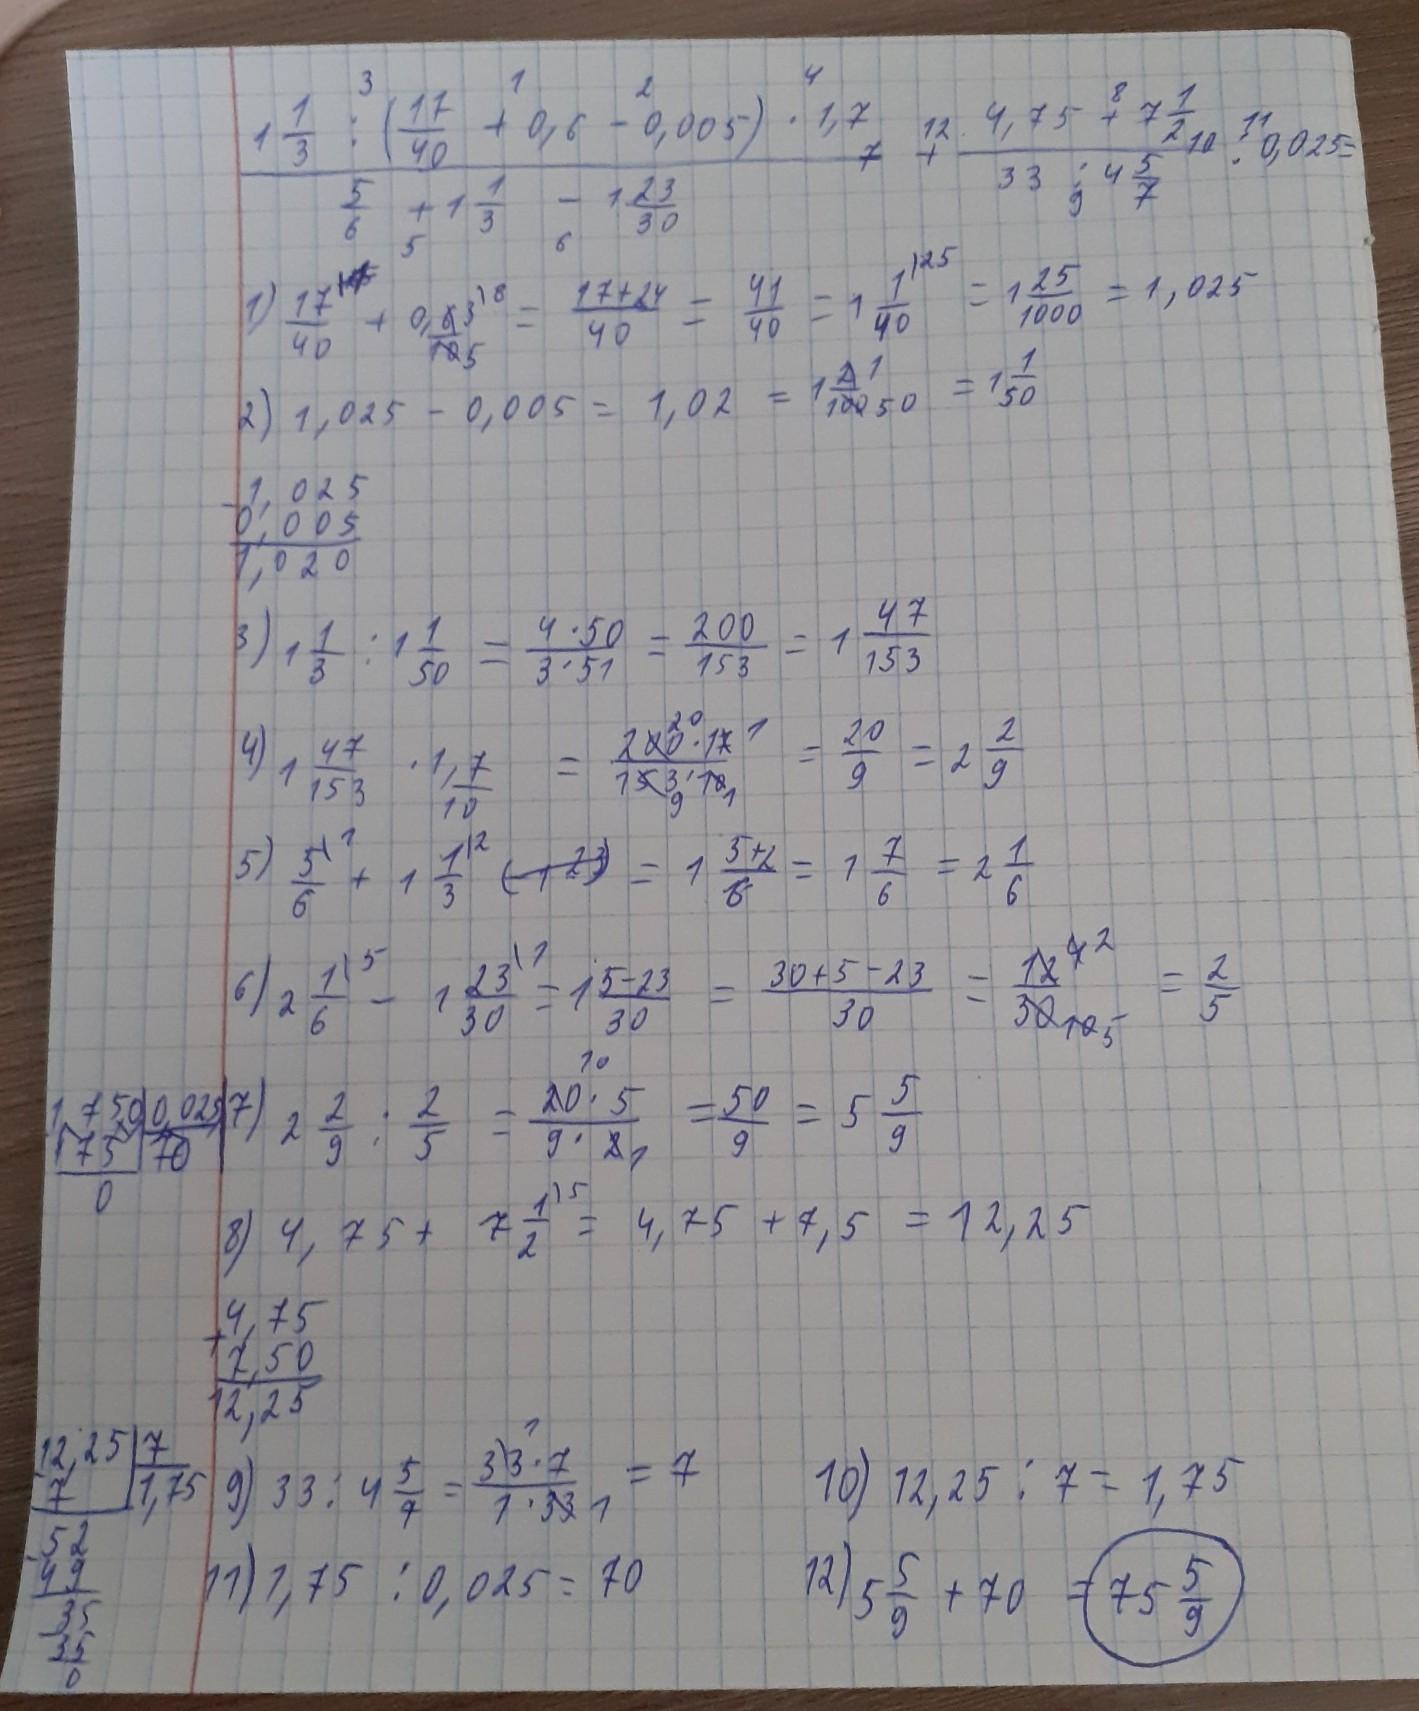 3 1 2 4 8 11
1 1/3 : (17/40 + 0,6 - 0,005) · 1,7 7 12 + 4,75 + 7 1/2 10 : 0,025 =
5/6 + 1 1/3 - 1 23/30 33 : 4 5/7
5 6 9
1) 17/40 + 0,6 3\8 / 10 5 = 17+24/40 = 41/40 = 1 1/40 \25 = 1 25/1000 = 1,025
2) 1,025 - 0,005 = 1,02 = 1 2 1/100 50 = 1 1/50
- 1,025
0,005
1,020
3) 1 1/3 : 1 1/50 = 4·50/3·51 = 200/153 = 1 47/153
4) 1 47/153 · 1,7/10 = 200 20·17 1/153 9·10 1 = 20/9 = 2 2/9
5) 5/6 \1 + 1 1/3 \2 (-1 23) = 1 5+2/6 = 1 7/6 = 2 1/6
6) 2 1/6 \5 - 1 23/30 \1 = 1 5-23/30 = 30+5-23/30 = 12 4 2/30 10 5 = 2/5
1,750 | 0,025
175 | 70
0
7) 2 2/9 : 2/5 = 20 10·5/9·2 1 = 50/9 = 5 5/9
8) 4,75 + 7 1/2 \5 = 4,75 + 7,5 = 12,25
+ 4,75
7,50
12,25
12,25 | 7
7 | 1,75
- 52
49
35
35
0
9) 33 : 4 5/7 = 33 1·7/1·33 1 = 7 10) 12,25 : 7 = 1,75
11) 1,75 : 0,025 = 70 12) 5 5/9 + 70 = 75 5/9